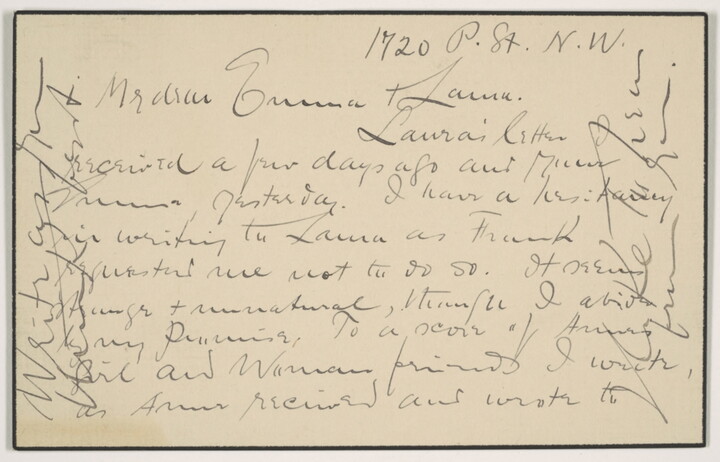 1720 P. St. N.W.
My dear Emma + Laura.
Laura's letter I
received a few days ago and your
Emma, yesterday. I have a hesitancy
in writing to Laura as Frank
requested me not to do so. It seems
strange + unnatural, though I abide
by my Promise. To a score of Annes
Girl and Woman friends I wrote,
as Anne received and wrote to
Write as you